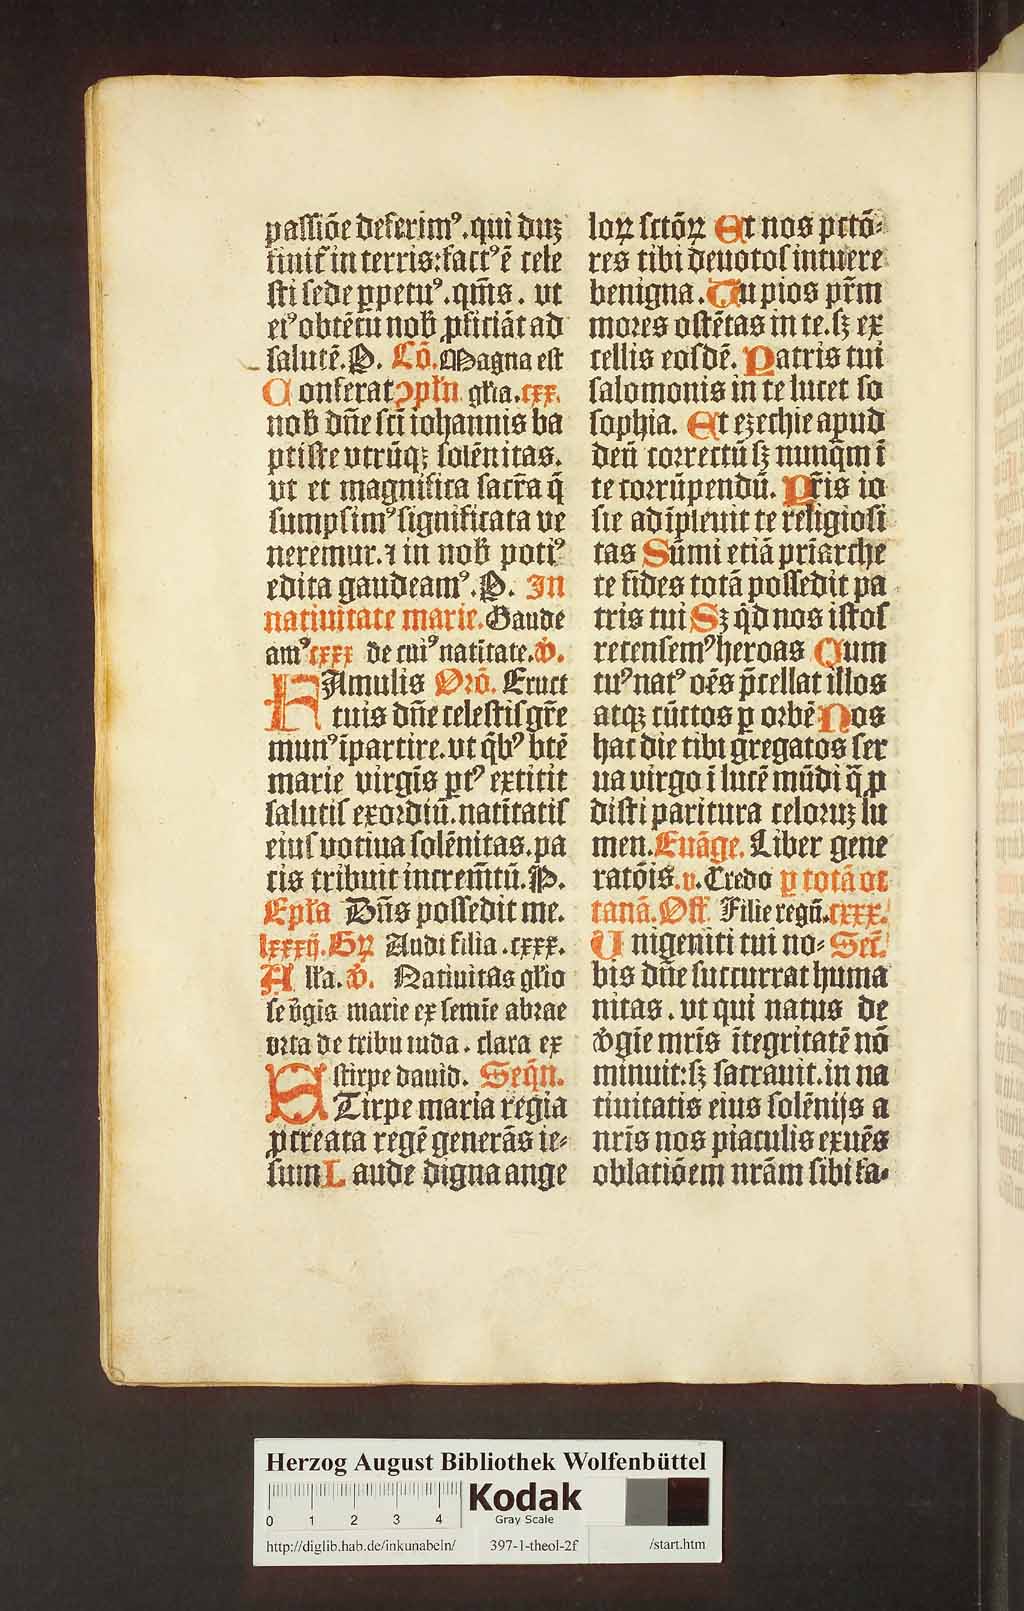 passiōe deferimꝰ. qui duꝫ
finiť in terris: factꝰ ē cele
sti sede ꝑpetuꝰ. qm̄s. vt
eiꝰ obtētu nob̄ ꝓficiāt ad
salutē. P. Cō. Magna est
Conferat ↄpłn głia. cxx.
nob̄ dn̄e scī iohannis ba
ptiste vtrūqꝫ solēnitas.
vt et magnifica sacr̄a q̄
sumpsimꝰ significata ve
neremur. ⁊ in nob̄ potiꝰ
edita gaudeamꝰ. P. In
natiuitate marie. Gaude
amꝰ cxxx de cuiꝰ natītate. v̄.
FAmulis Orō. Eruct
tuis dn̄e celestis gr̄e
munꝰ īpartire. vt qb̄ꝰ btē
marie virgīs ꝑtꝰ extitit
salutis exordiū. natītatis
eius votiua solēnitas. pa
cis tribuit increm̄tū. P.
Epła Dn̄s possedit me.
lxxxij. Gꝝ Audi filia. cxxx.
Alła. v̄. Natiuitas glīo
se v̄gis marie ex semīe abrae
orta de tribu iuda. clara ex
stirpe dauid. Seqn̄.
STirpe maria regia
ꝓcreata regē generās ie-
sum Laude digna ange
loꝝ sctōꝝ Et nos pctō-
res tibi deuotos intuere
benigna. Tu pios pr̄m
mores ostētas in te. sꝫ ex
cellis eosdē. Patris tui
salomonis in te lucet so
sophia. Et ezechie apud
deū correctū sꝫ nunq̄m ī
te corrūpendū. Pr̄is io
sie adīpleuit te religiosi
tas Sūmi etiā pr̄iarche
te fides totā possedit pa
tris tui Sꝫ qd̄ nos istos
recensemꝰ heroas Cum
tuꝰ natꝰ oēs p̄cellat illos
atqꝫ cūctos ꝑ orbē Nos
hac die tibi gregatos ser
ua virgo ī lucē mūdi q̄ ꝓ
disti paritura celoruꝫ lu
men. Euāge. Liber gene
ratōis. v. Credo ꝑ totā oc
tanā. Off. Filie regū. cxxx.
Unigeniti tui no- Sec̄.
bis dn̄e succurrat huma
nitas. vt qui natus de
v̄gīe mr̄is ītegritatē nō
minuit: sꝫ sacrauit. in na
tiuitatis eius solēnijs a
nr̄is nos piaculis exuēs
oblatiōem nrām sibi fa-
Herzog August Bibliothek Wolfenbüttel
0 1 2 3 4
Kodak
Gray Scale
http://diglib.hab.de/inkunabeln/ 397-1-theol-2f /start.htm